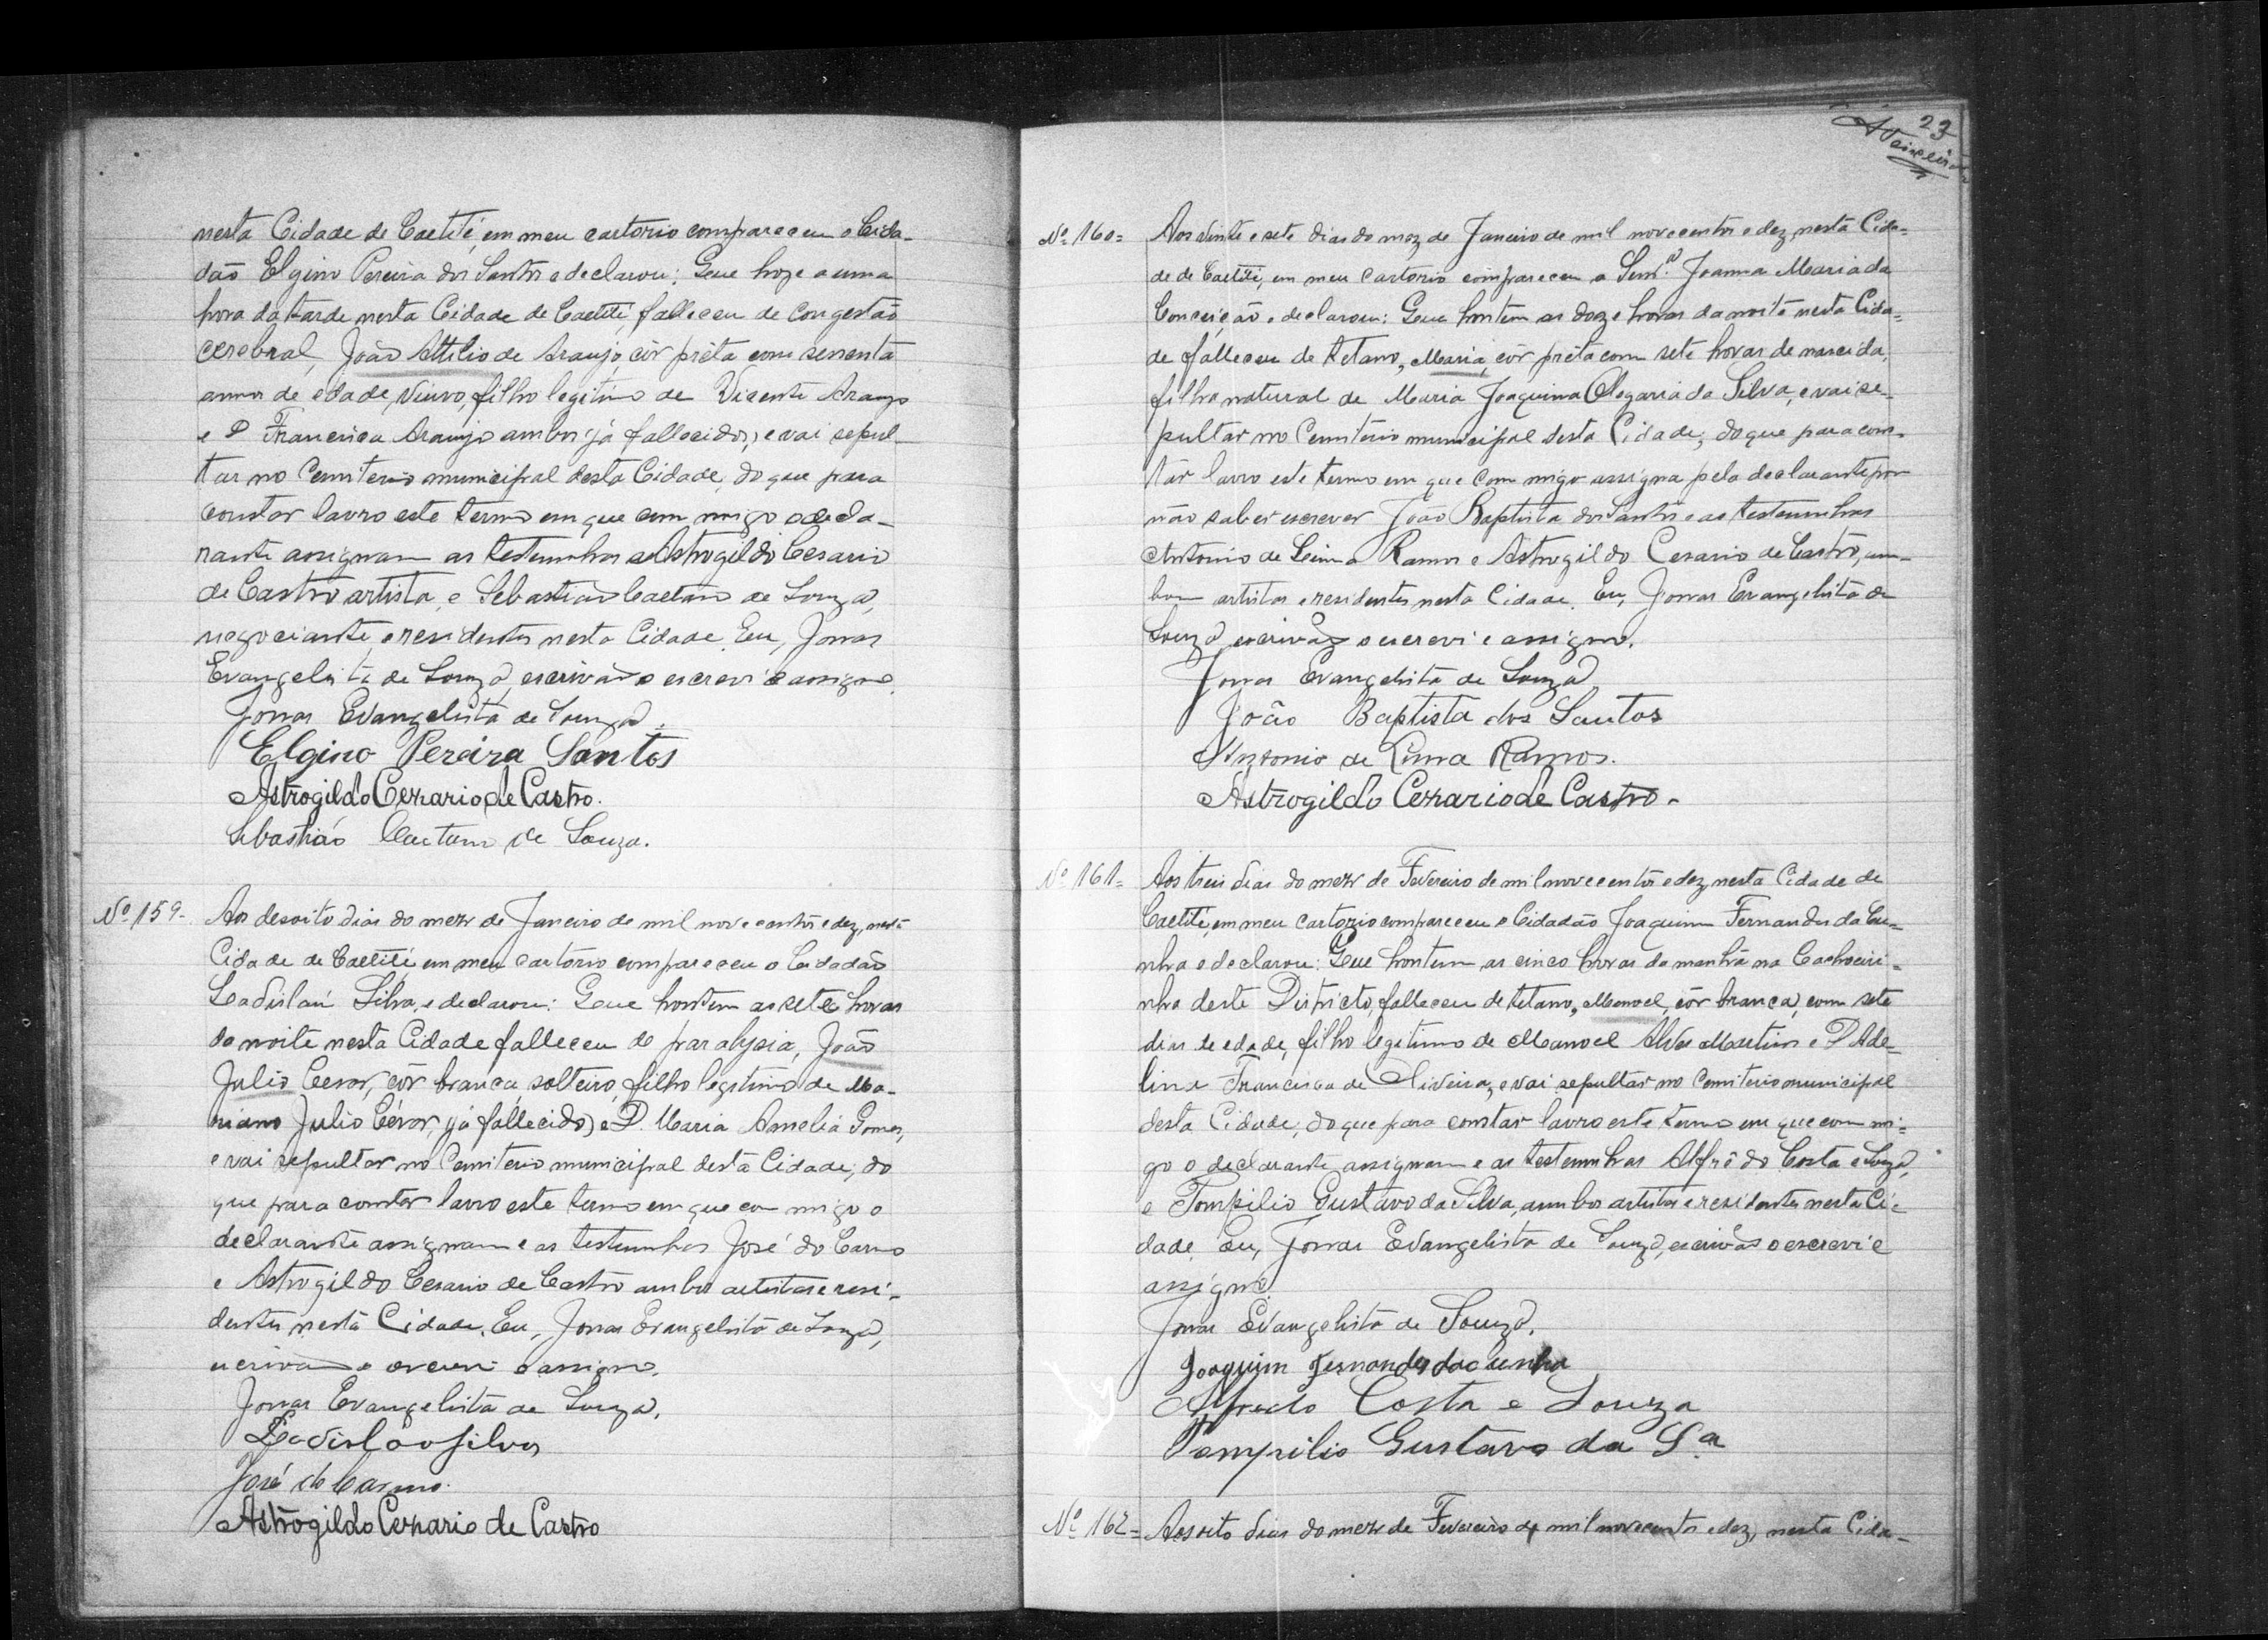 nesta Cidade de Caetité, em meu cartorio compareceu o Cida-
dão Elgino Pereira dos Santos e declarou: Que hoje a uma
hora da tarde, nesta Cidade de Caetité, falleceu de congestão
cerebral, João Attilio de Araujo, côr prêta com sessenta
annos de edade, viuvo, filho legitimo de Vicente Araujo
e D Francisca Araujo ambos já fallecidos, e vai sepul-
tar no Cemiterio municipal desta Cidade, do que para
constar lavro este termo em que com migo o decla-
rante assignam as testemunhas Astrogildo Cesario
de Castro artista, e Sebastião Caetano de Souza,
negociante, e residentes nesta Cidade. Eu, Jonas
Evangelista de Souza, escrivão o escrevi e assigno.
Jonas Evangelista de Souza.
Elgino Pereira Santos
Astrogildo Cezario de Castro.
Sebastião Caetano de Souza.
Nº 159- Aos desoito dias do mez de Janeiro de mil nove centos e dez, nesta
Cidade de Caetité em meu cartorio compareceu o Cidadão
Ladislau Silva, e declarou: Que hontem as sete horas
da noite nesta Cidade falleceu de paralysia, João
Julio Cesar, côr branca, solteiro, filho legitimo de Ma-
riano Julio César, (já fallecido) e D. Maria Amelia Gomes,
e vai sepultar no Cemiterio municipal desta Cidade; do
que para constar lavro este termo em que com migo o
declarante assignam e as testemunhas José do Carmo
e Astrogildo Cesario de Castro ambos artistas e resi-
dentes nesta Cidade. Eu, Jonas Evangelista de Souza,
escrivão o escrevi e assigno.
Jonas Evangelista de Souza.
Ladislao Silva
José do Carmo.
Astrogildo Cezario de Castro
23
Nº 160= Aos vinte e sete dias do mez de Janeiro de mil novecentos e dez, nesta Cida=
de de Caetité, em meu cartorio compareceu a Senrª Joanna Maria da
Conceição e declarou: Que hontem as doze horas da noite nesta Cida=
de falleceu de tetano, Maria, côr prêta com sete horas de nascida,
filha natural de Maria Joaquina Olegaria da Silva, e vai se-
pultar no Cemiterio municipal desta Cidade; do que para cons-
tar lavro este termo em que com migo assigna pela declarante por
não saber escrever João Baptista dos Santos e as testemunhas
Antonio de Lima Ramos e Astrogildo Cesario de Castro, am-
bos artistas e residentes nesta Cidade. Eu, Jonas Evangelista de
Souza, escrivão o escrevi e assigno.
Jonas Evangelista de Souza
João Baptista dos Santos
Antonio de Lima Ramos.
Astrogildo Cezario de Castro-
Nº 161= Aos treis dias do mez de Fevereiro de mil novecentos e dez, nesta Cidade de
Caetité, em meu cartorio compareceu o Cidadão Joaquim Fernandes da Cu-
nha e declarou: Que hontem as cinco horas da manhã na Cachoeiri=
nha deste Districto, falleceu de tetano, Manoel, côr branca, com sete
dias de edade, filho legitimo de Manoel Alves Martins e D Ade-
lina Francisca de Oliveira, e vai sepultar no Cemiterio municipal
desta Cidade, do que para constar lavro este termo em que com mi=
go o declarante assignam e as testemunhas Alfrêdo Costa e Souza,
e Pompilio Gustavo da Silva, ambos artistas e residentes nesta Ci=
dade. Eu, Jonas Evangelista de Souza, escrivão o escrevi e
assigno.
Jonas Evangelista de Souza.
Joaquim Fernandes da Cunha
Alfredo Costa e Souza
Pompilio Gustavo da Sª
Nº 162= Aos oito dias do mez de Fevereiro de mil novecentos e dez, nesta Cida-